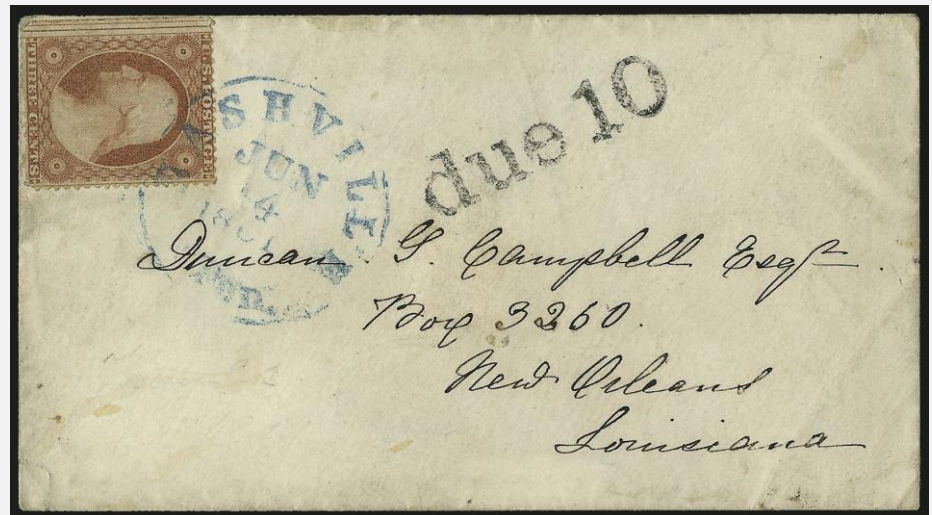 U.S. POSTAGE
THREE CENTS
NASHVILLE
JUN
14
1861
Ten.
due 10
Duncan G. Campbell Esqr
Box 3260.
New Orleans
Louisiana